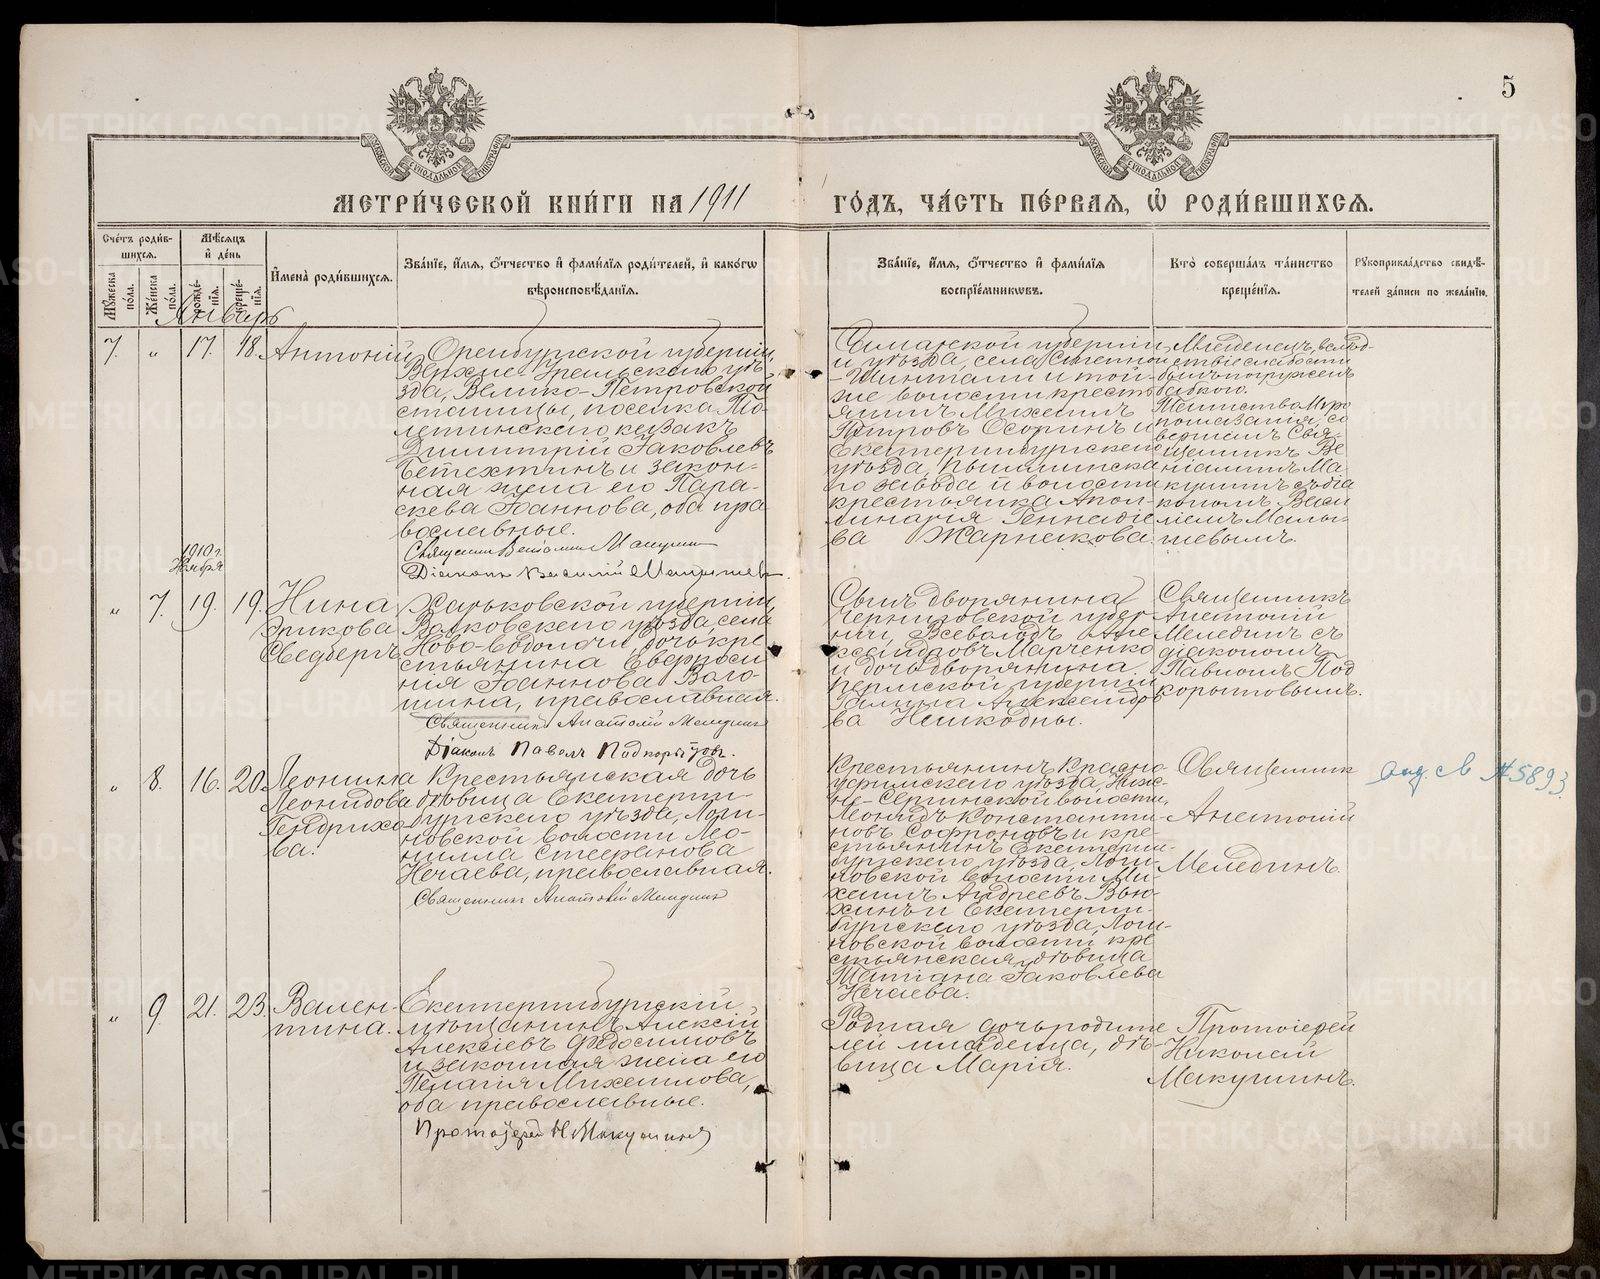 5
МОСКОВСКОЙ СѴНОДАЛЬНОЙ ТИПОГРАФІИ
МОСКОВСКОЙ СѴНОДАЛЬНОЙ ТИПОГРАФІИ
МЕТРИ́ЧЕСКОЙ КНИ́ГИ НА 1911
ГО́ДЪ, ЧА́СТЬ ПЕ́РВАЯ, Ѿ РОДИ́ВШИХСЯ.
Сче́тъ роди́в-
шихся.
Му́жеска
по́ла.
Же́нска
по́ла.
Мѣ́сяцъ
и҆ де́нь
рожде́-
нія.
креще́-
нія.
И҆мена̀ роди́вшихся.
Зва́ніе, и҆́мя, ѻ҆́тчество и҆ фами́лія роди́телей, и҆ како́гѡ
вѣроисповѣ́данія.
Зва́ніе, и҆́мя, ѻ҆́тчество и҆ фами́лія
воспріе́мникѡвъ.
Кто̀ соверша́лъ та́инство
креще́нія.
Рукоприкла́дство свидѣ́-
телей за́писи по жела́нію.
Январь
7. „ 17. 18. Антоній
Оренбургской губерніи,
Верхне-Уральскаго уѣ-
зда, Велико-Петровской
станицы, поселка По-
летинскаго казакъ
Димитрій Іаковлевъ
Бетехтинъ и закон-
ная жена его Пара-
скева Іоаннова, оба пра-
вославные.
Священникъ Веніаминъ Макушинъ
Діаконъ Василій
Самарской губерніи
и уѣзда, села Степной
-Шинтали и той-
же волости крестья-
янинъ Михаилъ
Петровъ Осоринъ и
Екатеринбургскаго
уѣзда, Пышминска-
го завода и волости
крестьянка Апол-
линарія Геннадіе-
ва Жарникова.
Младенецъ, вслѣд-
ствіе слабости
былъ погруженъ
бабкою.
Таинство Миро-
помазанія со-
вершалъ Свя-
щенникъ Ве-
ніаминъ Ма-
кушинъ съ діа-
кономъ Васи-
ліемъ
1910 г.
Ноября
„ 7. 19. 19. Нина
Эрикова
Сведбергъ
Харьковской губерніи,
Валковскаго уѣзда, села
Ново-Водолаги дочь кре-
стьянина Евфроси-
нія Іоаннова Воло-
шина, православная.
Священникъ Анатолій Меледин
Діаконъ Павелъ Подкорытовъ.
Сынъ дворянина
Черниговской губер-
ніи, Всеволодъ Але-
ксандровъ Марченко
и дочь дворянина
Пермской губерніи
Галина Александро-
ва
Священникъ
Анатолій
Мелединъ съ
діакономъ
Павломъ Под-
корытовымъ.
„ 8. 16. 20. Леонилла
Леонидова
Гендрихо-
ва.
Крестьянская дочь
дѣвица Екатерин-
бургскаго уѣзда, Логи-
новской волости Лео-
нилла Стефанова
Нечаева, православная.
Священникъ Анатолій Меледин
Крестьянинъ Красно-
уфимскаго уѣзда, Ниж-
не-Сергинской волости,
Леонидъ Константи-
новъ Софроновъ и кре-
стьянинъ Екатерин-
бургскаго уѣзда, Логи-
новской волости Ми-
хаилъ Андреевъ Вью-
хинъ и Екатерин-
бургскаго уѣзда, Логи-
новской волости кре-
стьянская дѣвица
Татіана Іаковлева
Нечаева.
Священник
Анатолій
Мелединъ.
№ 5893.
„ 9. 21. 23. Вален-
тина.
Екатеринбургскій
мѣщанинъ Алексій
Алексіевъ Ѳедосимовъ
и законная жена его
Пелагія Михаилова,
оба православные.
Протоіерей Н. Макушинъ
Родная дочь родите-
лей младенца, дѣ-
вица Марія.
Протоіерей
Николай
Макушинъ.